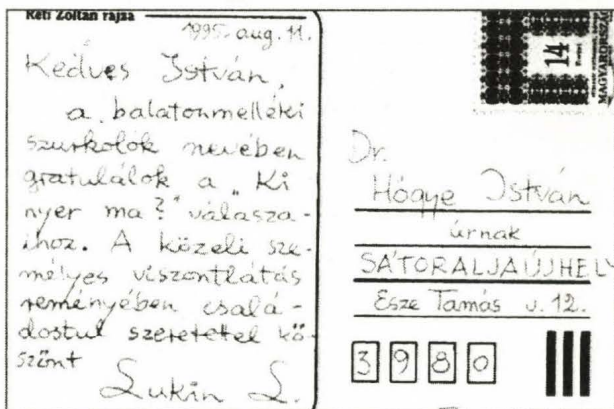 Réti Zoltán rajza
1995. aug. 11.
Kedves István,
a balatonmelléki
szurkolók nevében
gratulálok a „Ki
nyer ma?” válasza-
ihoz. A közeli sze-
mélyes viszontlátás
reményében csalá-
dostul szeretettel kö-
szönt
Lukin L.
14
MAGYARORSZÁG
Dr.
Hőgye István
úrnak
SÁTORALJAÚJHELY
Esze Tamás u. 12.
3980